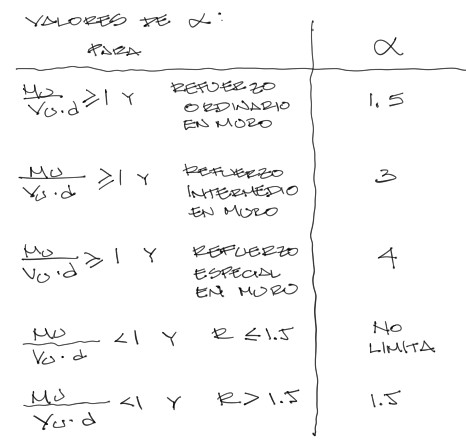 VALORES DE α:
PARA α
Mu/Vu·d ≥ 1 Y REFUERZO ORDINARIO EN MURO 1.5
Mu/Vu·d ≥ 1 Y REFUERZO INTERMEDIO EN MURO 3
Mu/Vu·d ≥ 1 Y REFUERZO ESPECIAL EN MURO 4
Mu/Vu·d < 1 Y R ≤ 1.5 NO LIMITA
Mu/Vu·d < 1 Y R > 1.5 1.5